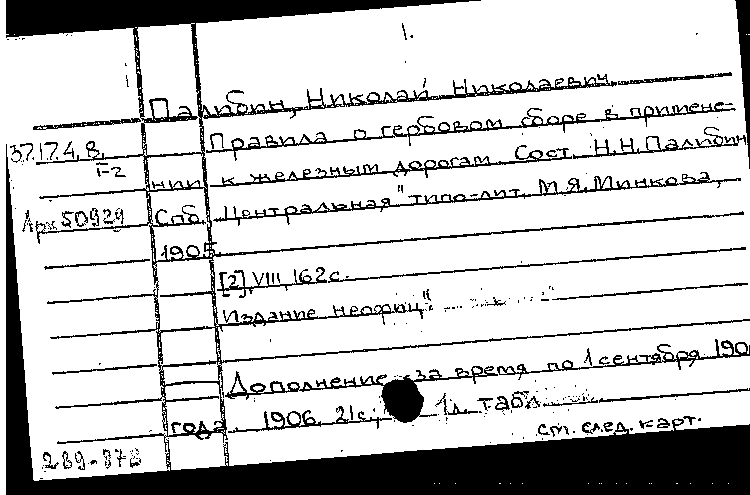 1.
Палибин, Николай Николаевич.
37.17.4.8.
I-2
Правила о гербовом сборе в примене-
нии к железным дорогам. Сост. Н.Н. Палибин
Арх 50929
Спб. "Центральная" типо-лит. М.Я. Минкова,
1905.
[2], VIII, 162 с.
Издание неофиц"
Дополнение за время по 1 сентября 190
года. 1906. 21 с.; 1 л. табл.
См. след. карт.
289-878